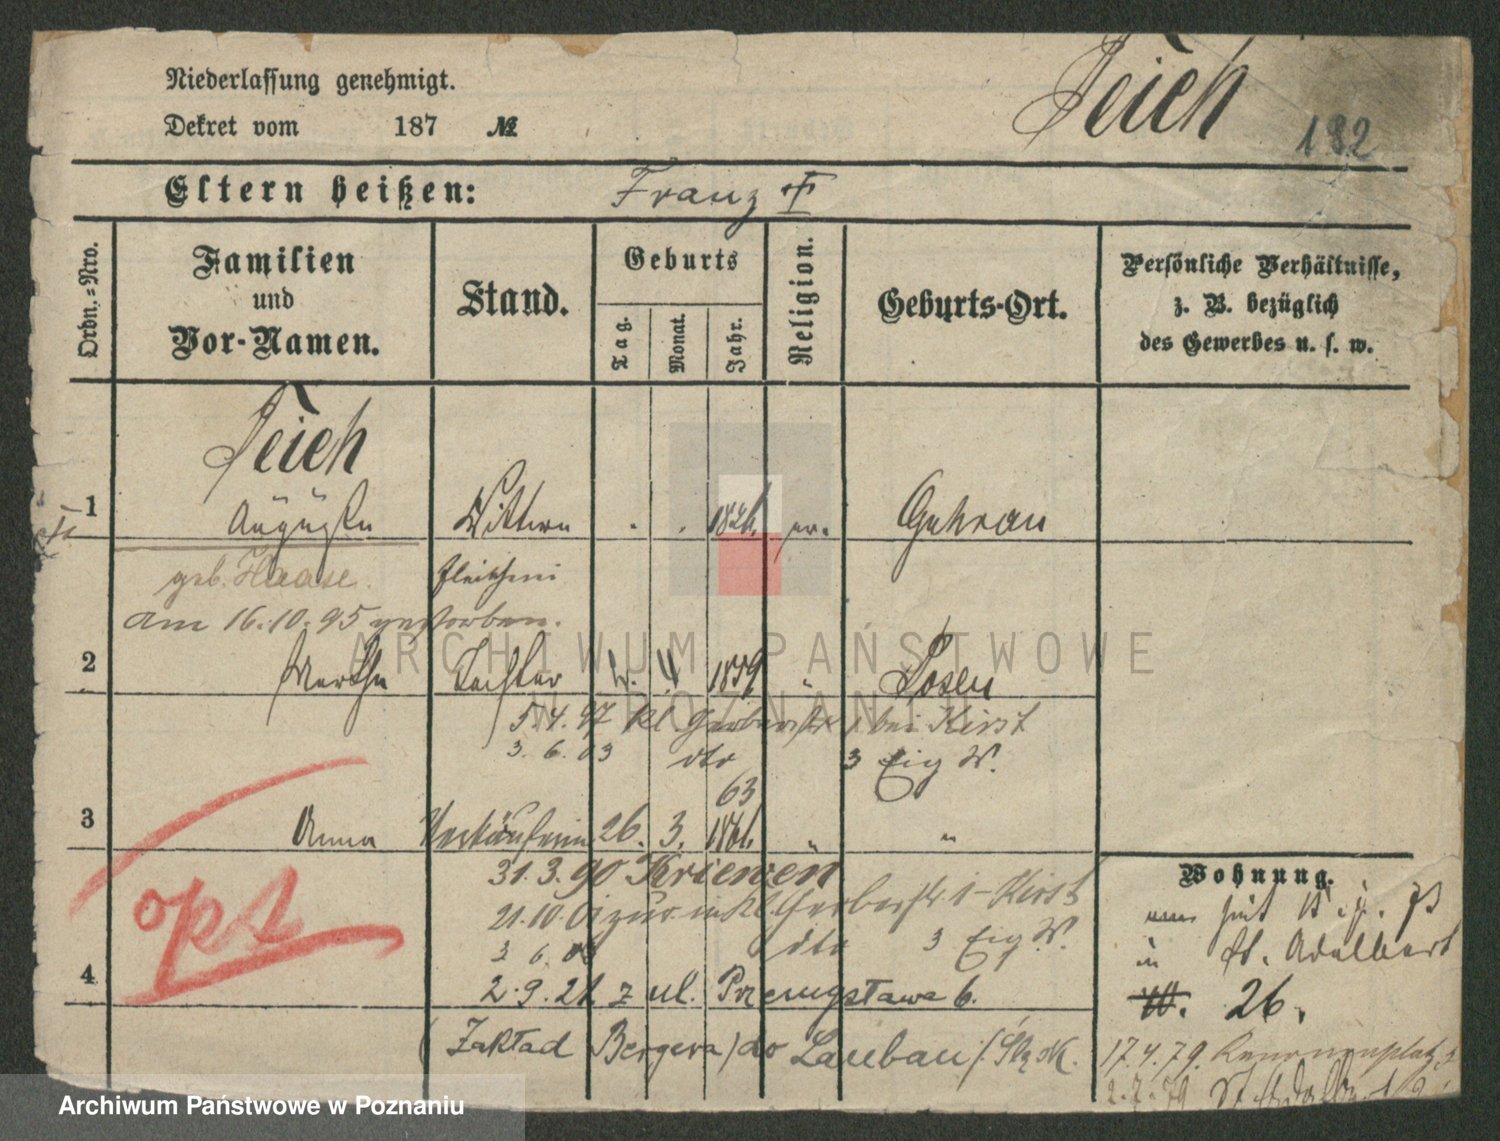 Niederlassung genehmigt.
Dekret vom 187 №
Teich
182
Eltern heißen: Franz †
Ordn.-Nro.
Familien und Vor-Namen.
Stand.
Geburts
Tag.
Monat.
Jahr.
Religion.
Geburts-Ort.
Persönliche Verhältnisse, z. B. bezüglich des Gewerbes u. s. w.
Teich
1 Auguste Wittwe . . 1826. ev. Guhrau
geb. Haase.
am 16.10.95 gestorben.
2 Martha Tochter 4 1859 " Posen
5.4.97 kl Gerberstr 1 bei Kirst
3. 6. 03 dto 3 Eig W.
63
3 Anna Verkäuferin 26. 3. 1861. " "
31.3.90 Kriewen
21.10. zur. in kl. Gerberstr. 1 - Kirst
3 6. 03 dto 3 Eig. W.
opt
4 2.9.21 z ul. Przemysława 6.
(Zakład Bergera) do Laubau /: Śląsk.
Wohnung.
in St. Adalbert
W. 26.
17.4.79. Kanonenplatz
2.7.79 St Adalb.
ARCHIWUM PAŃSTWOWE
W POZNANIU
Archiwum Państwowe w Poznaniu